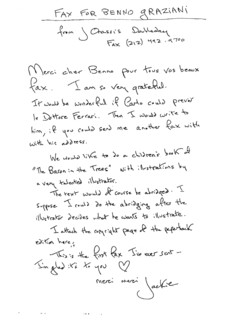 FAX FOR BENNO GRAZIANI
from J
Fax (212) 492-9700
Merci cher Benno pour tous vos beaux
fax. I am so very grateful.
It would be wonderful if Carlo could prevenir
lo Dottore Ferrari. Then I would write to
him, if you could send me another fax with
with his address.
We would like to do a children's book of
"The Baron in the Trees" with illustrations by
a very talented illustrator.
The text would of course be abridged. I
suppose I could do the abridging after the
illustrator decides what he wants to illustrate.
I attach the copyright page of the paperback
edition here,
This is the first fax I've ever sent -
I'm glad it's to you ♡
merci merci
Jackie